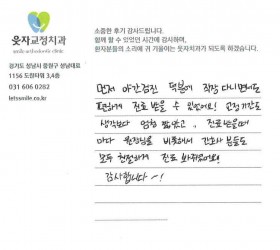 웃자교정치과
smile orthodontic clinic
경기도 성남시 중원구 성남대로
1156 도원타워 3,4층
031 606 0282
letssmile.co.kr
소중한 후기 감사드립니다.
함께 할 수 있었던 시간에 감사하며,
환자분들의 소리에 귀 기울이는 웃자치과가 되도록 하겠습니다.
먼저 야간검진 덕분에 직장 다니면서도
편하게 진료 받을 수 있었어요! 교정기간도
생각보다 엄청 짧았고.. 진료받을때
마다 원장님을 비롯해서 간호사 분들도
모두 친절하게 진료 봐주셔요!
감사합니다~!